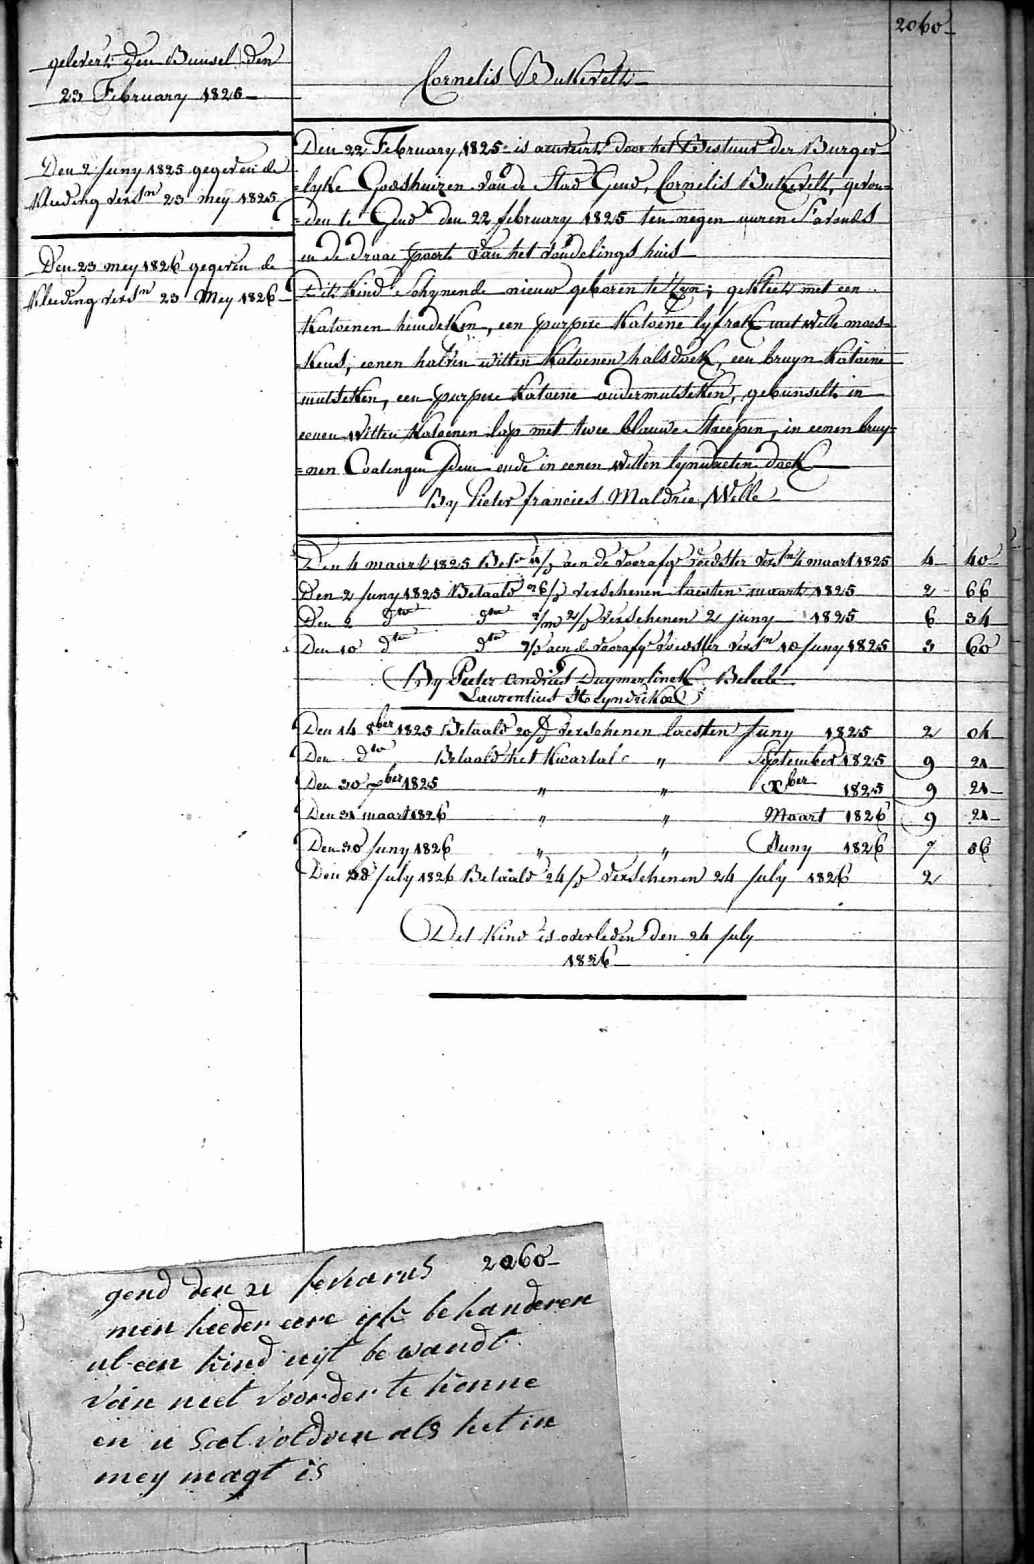 2060
gelevert den Bunsel den
23 February 1825
Den 2 Juny 1825 gegeven de
kleeding versn 23 mey 1825
Den 23 mey 1826 gegeven de
kleeding versn 23 Mey 1826
Cornelis Butkevelt
Den 22 February 1825 is door het Bestuur der Burger-
=lyke Godshuizen van de Stad Gend, Cornelis Butkevelt, gevon=
=den te Gend den 22 february 1825 ten negen uuren S'avonds
in de draai poort van het vondelings huis
Dit kind schynende nieuw geboren te Zyn; gekleet met een
katoenen hemdeken, een purpere katoene lyfrok met witte mous=
=kens, eenen halven witten katoenen halsdoek, een bruyn katoene
mutseken, een purpere katoene ondermutseken, gebunselt in
eenen witten katoenen lap met twee blauwe streepen, in eenen bruy=
=nen Coatingen idem ende in eenen witten lynwaeten doek
By Pieter francies Maldrie, Welle
Den 4 maart 1825 aen de voorafge voedster versn 4 maart 1825 4 40
Den 2 Juny 1825 Betaald 26/d verschenen laesten maart 1825 2 66
Den 2 dto dto 2/m 2/d verschenen 2 juny 1825 6 34
Den 10 dto dto aen de voorafge voedster versn 10 Juny 1825 3 60
By Pieter Andries Duymerlinck Belsele
Laurentius Heyndrikx
Den 14 8ber 1825 Betaald 20/d verschenen laesten Juny 1825 2 04
Den dto Betaald het Kwartal " September 1825 9 21
Den 30 xber 1825 " " Xber 1825 9 21
Den 31 maart 1826 " " Maart 1826 9 21
Den 30 Juny 1826 " " Juny 1826 7 86
Den 28 July 1826 Betaald 24/d verschenen 24 July 1826 2
Dit kind is overleden den 24 July
1826
gend den 21 feverarus 2060
men heeder eere ijk be handeren
ul een kind uijt be wandt
vain niet voorder te konne
en u sal voldoen als het in
mey magt is